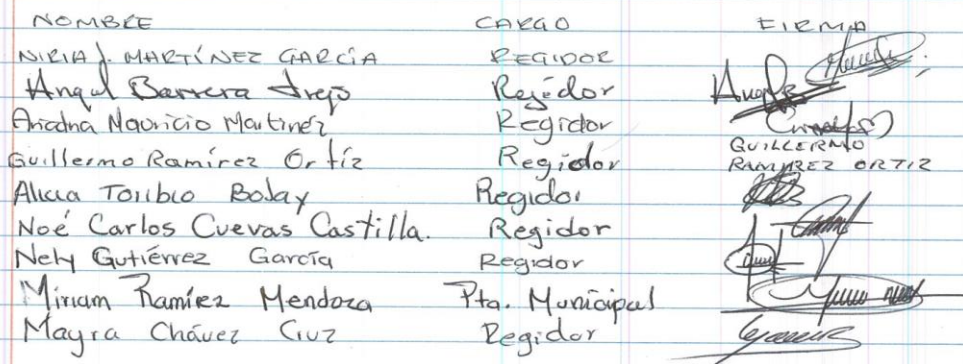 NOMBRE CARGO FIRMA
NIRIA J. MARTÍNEZ GARCÍA REGIDOR
Angel Barrera Trejo Regedor
Ariadna Mauricio Martinez Regidor
Guillermo Ramírez Ortíz Regidor GUILLERMO RAMIREZ ORTIZ
Alicia Toribio Bolay Regidor
Noé Carlos Cuevas Castilla. Regidor
Nely Gutiérrez García Regidor
Miriam Ramírez Mendoza Pta. Municipal
Mayra Chávez Cruz Regidor